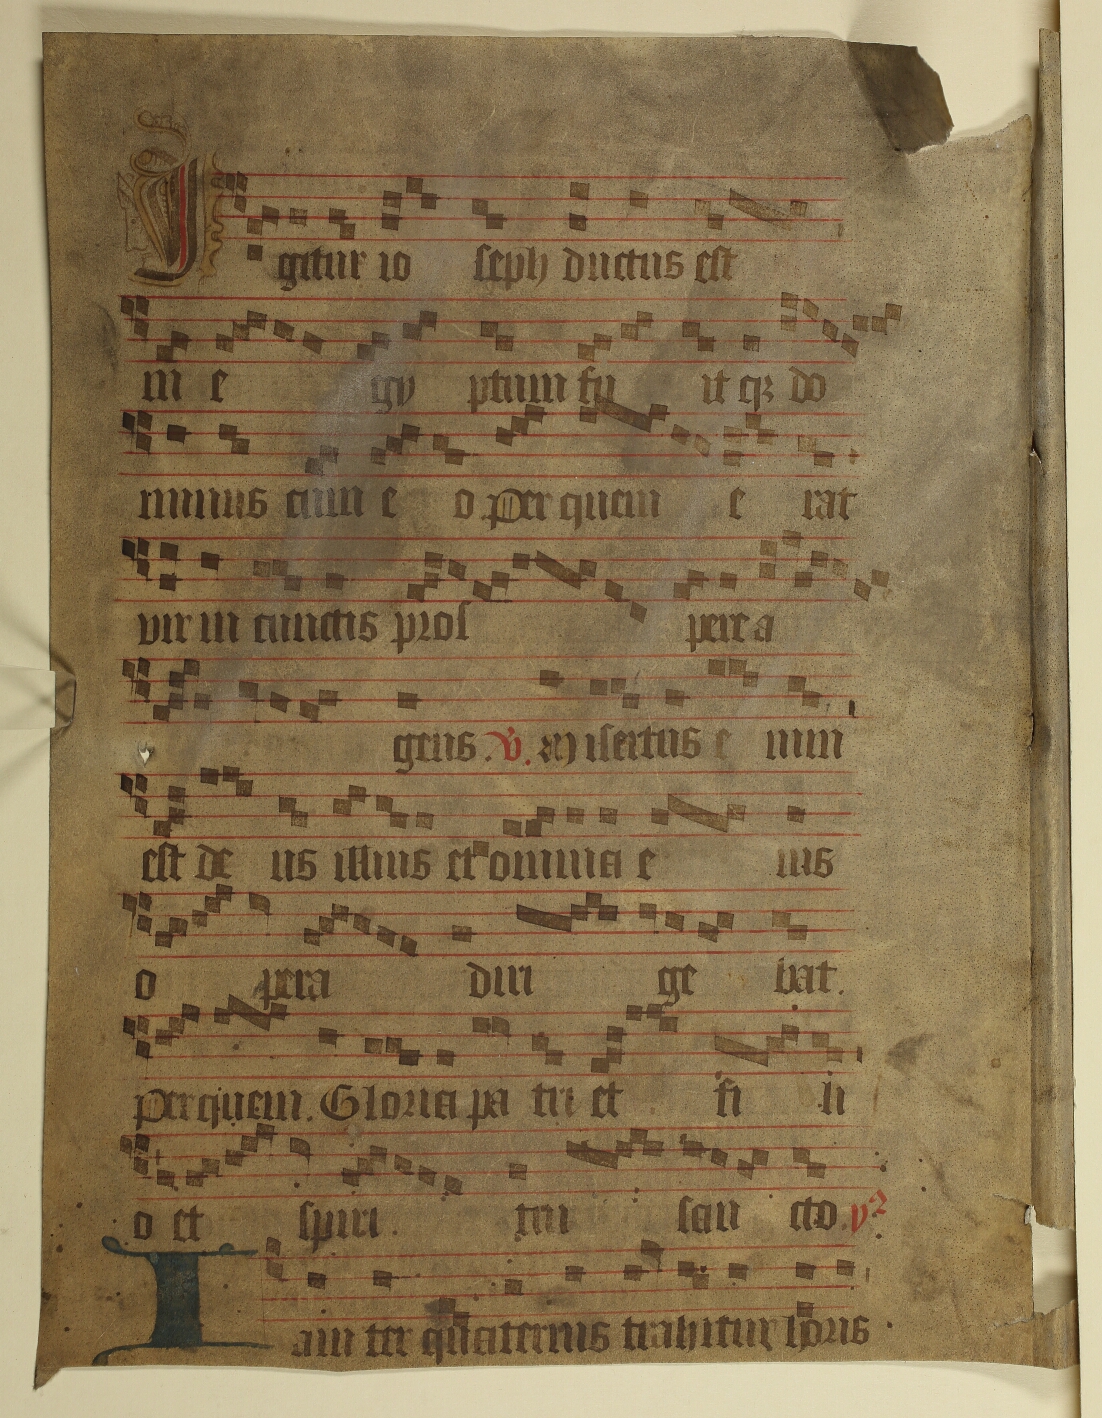 Igitur io seph ductus est
in e gy ptum fu it qꝫ do
minus cum e o Per quem e rat
vir in cunctis pros pere a
gens. V. Misertus e nim
est de us illius et omnia e ius
o pera diri ge bat.
Per quem. Gloria pa tri et fi li
o et spiri tui san cto. yꝰ
Iam ter quaternis trahitur horis